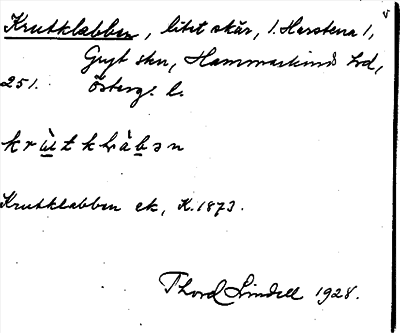 Krutklabben, litet skär, 1. Harstena 1,
Gryt skn, Hammarkinds hd,
251. Österg. l.
krùtklàbən
Krutklabben ek, K. 1873.
Thord Lindell 1928.